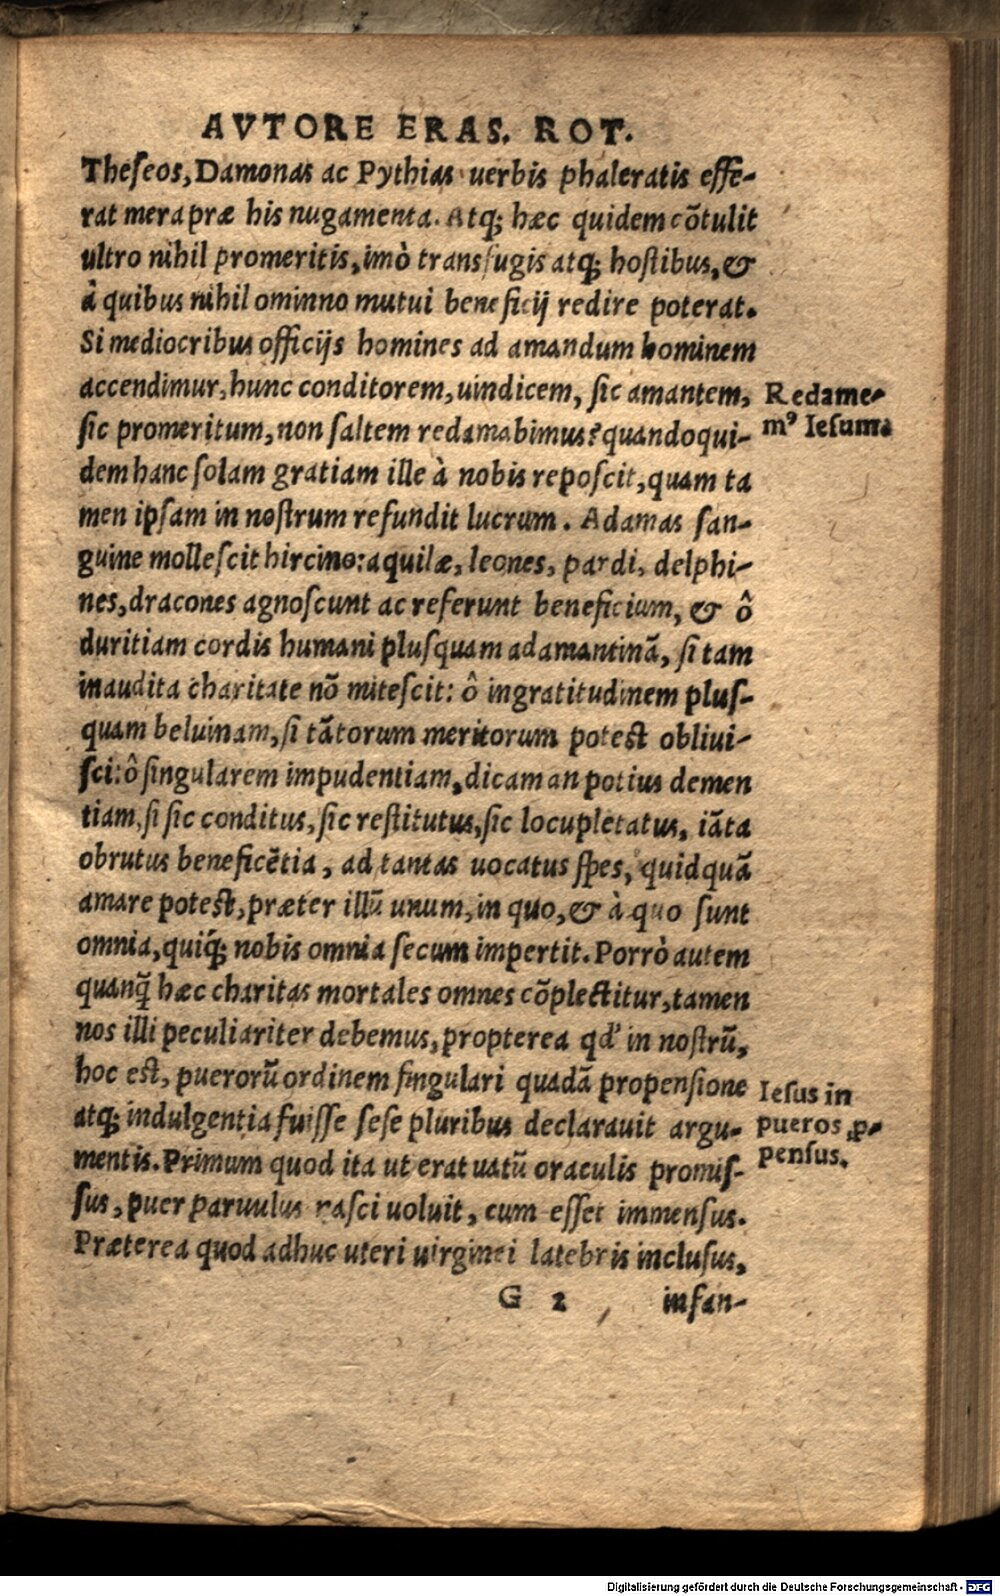 AVTORE ERAS. ROT.
Theſeos, Damonas ac Pythias uerbis phaleratis effe-
rat mera præ his nugamenta. Atq; hæc quidem cõtulit
ultro nihil promeritis, imò transfugis atq; hoſtibus, &
à quibus nihil ominno mutui beneficij redire poterat.
Si mediocribus officijs homines ad amandum hominem
accendimur, hunc conditorem, uindicem, ſic amantem,
Redame-
ſic promeritum, non ſaltem redamabimus? quandoqui-
mꝰ Ieſum
dem hanc ſolam gratiam ille à nobis repoſcit, quam ta
men ipſam in noſtrum refundit lucrum. Adamas ſan-
guine molleſcit hircino: aquilæ, leones, pardi, delphi-
nes, dracones agnoſcunt ac referunt beneficium, & ô
duritiam cordis humani pluſquam adamantinã, ſi tam
inaudita charitate nõ miteſcit: ô ingratitudinem pluſ-
quam beluinam, ſi tãtorum meritorum poteſt obliui-
ſci: ô ſingularem impudentiam, dicam an potius demen
tiam, ſi ſic conditus, ſic reſtitutus, ſic locupletatus, iãta
obrutus beneficẽtia, ad tantas uocatus ſpes, quidquã
amare poteſt, præter illũ unum, in quo, & à quo ſunt
omnia, quiq́; nobis omnia ſecum impertit. Porrò autem
quanq̃ hæc charitas mortales omnes cõplectitur, tamen
nos illi peculiariter debemus, propterea qd' in noſtrũ,
hoc eſt, puerorũ ordinem ſingulari quadã propenſione
Ieſus in
atq; indulgentia fuiſſe ſeſe pluribus declarauit argu-
pueros ꝓ-
mentis. Primum quod ita ut erat uatũ oraculis promiſ-
penſus.
ſus, puer paruulus naſci uoluit, cum eſſet immenſus.
Præterea quod adhuc uteri uirginei latebris incluſus,
G 2 infan-
Digitalisierung gefördert durch die Deutsche Forschungsgemeinschaft - DFG